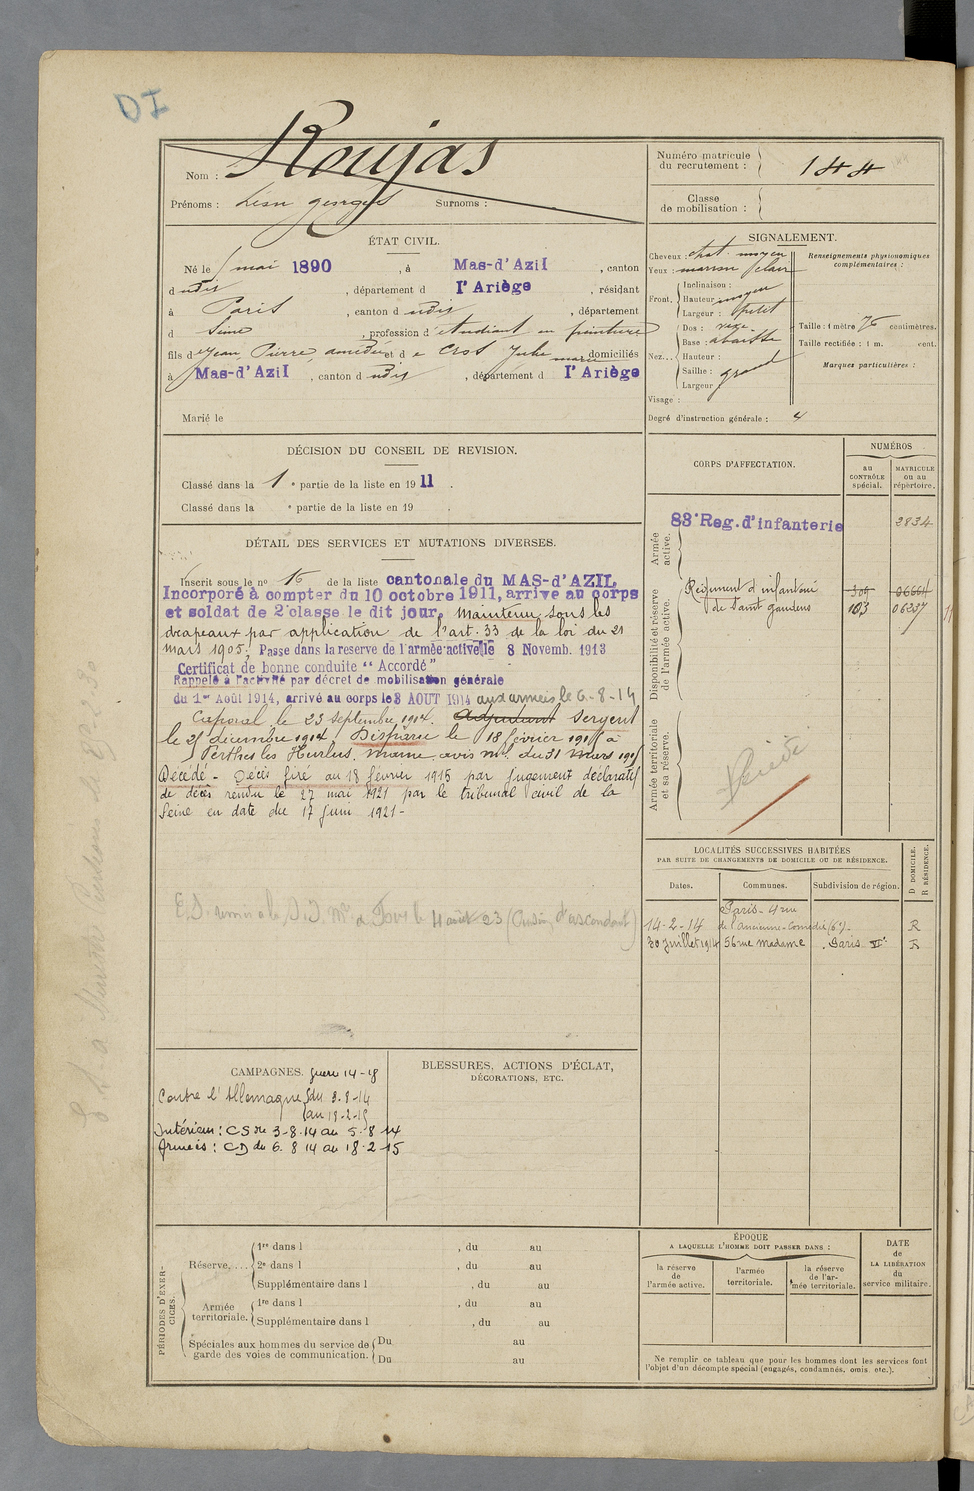 DI
Nom : Roujas
Prénoms : Léon Georges Surnoms :
Numéro matricule du recrutement : 144
Classe de mobilisation :
ÉTAT CIVIL.
Né le mai 1890, à Mas-d'Azil, canton
dudit, département d l'Ariège, résidant
à Paris, canton dudit, département
d Seine, profession d'étudiant en peinture
fils d Jean, Pierre, amédée et de Cros Julie marie domiciliés
à Mas-d'Azil, canton dudit, département d l'Ariège
Marié le
SIGNALEMENT.
Cheveux : chat. moyen
Yeux : marron clair
Front, Inclinaison :
Hauteur moyen
Largeur : petit
Nez... Dos : vexe.
Base : abaissée
Hauteur :
Saillie : grand
Largeur
Visage :
Renseignements physionomiques complémentaires :
Taille : 1 mètre 75 centimètres.
Taille rectifiée : 1 m. cent.
Marques particulières :
Degré d'instruction générale : 4
DÉCISION DU CONSEIL DE REVISION.
Classé dans la 1e partie de la liste en 1911.
Classé dans la e partie de la liste en 19 .
DÉTAIL DES SERVICES ET MUTATIONS DIVERSES.
Inscrit sous le no 16 de la liste cantonale du MAS-d'AZIL
Incorporé à compter du 10 octobre 1911, arrivé au corps
et soldat de 2e classe le dit jour. Maintenu sous les
drapeaux par application de l'art. 33 de la loi du 21
mars 1905. Passé dans la reserve de l'armée active le 8 Novemb. 1913
Certificat de bonne conduite "Accordé"
Rappelé à l'activité par décret de mobilisation générale
du 1er Août 1914, arrivé au corps le 3 AOUT 1914 aux armées le 6-8-14
Caporal le 23 septembre 1914. Adjudant Sergent
le 25 décembre 1914. Disparu le 18 février 1915 à
Perthes les Hurlus, Marne, avis ml. du 31 Mars 1915
Décédé - Décès fixé au 18 février 1915 par jugement déclaratif
de décès rendu le 27 mai 1921 par le tribunal civil de la
Seine en date du 17 Juin 1921 -
CORPS D'AFFECTATION.
NUMÉROS
au CONTRÔLE spécial.
MATRICULE ou au répertoire.
Armée active.
83e Reg. d'infanterie 2834
Disponibilité et réserve de l'armée active.
Régiment d'infanterie
de Saint Gaudens 103 06237
Armée territoriale et sa réserve.
LOCALITÉS SUCCESSIVES HABITÉES
PAR SUITE DE CHANGEMENTS DE DOMICILE OU DE RÉSIDENCE.
Dates. Communes. Subdivision de région.
D DOMICILE.
R RÉSIDENCE.
Paris - 4 rue
14-2-14 de l'Ancienne-Comédie (6e) - R
30 juillet 1914 56 rue Madame . Paris VIe R
CAMPAGNES. guerre 14-18
Contre l'Allemagne du 3-8-14
au 18-2-15
Intérieur : CS du 3-8-14 au 5-8 14
Armées : CD du 6. 8 14 au 18-2-15
BLESSURES, ACTIONS D'ÉCLAT,
DÉCORATIONS, ETC.
PÉRIODES D'EXERCICES.
Réserve,... 1re dans l , du au
2e dans l , du au
Supplémentaire dans l , du au
Armée territoriale. 1re dans l , du au
Supplémentaire dans l , du au
Spéciales aux hommes du service de garde des voies de communication. Du au
Du au
ÉPOQUE
A LAQUELLE L'HOMME DOIT PASSER DANS :
la réserve de l'armée active.
l'armée territoriale.
la réserve de l'armée territoriale.
DATE de LA LIBÉRATION du service militaire.
Ne remplir ce tableau que pour les hommes dont les services font
l'objet d'un décompte spécial (engagés, condamnés, omis, etc.).